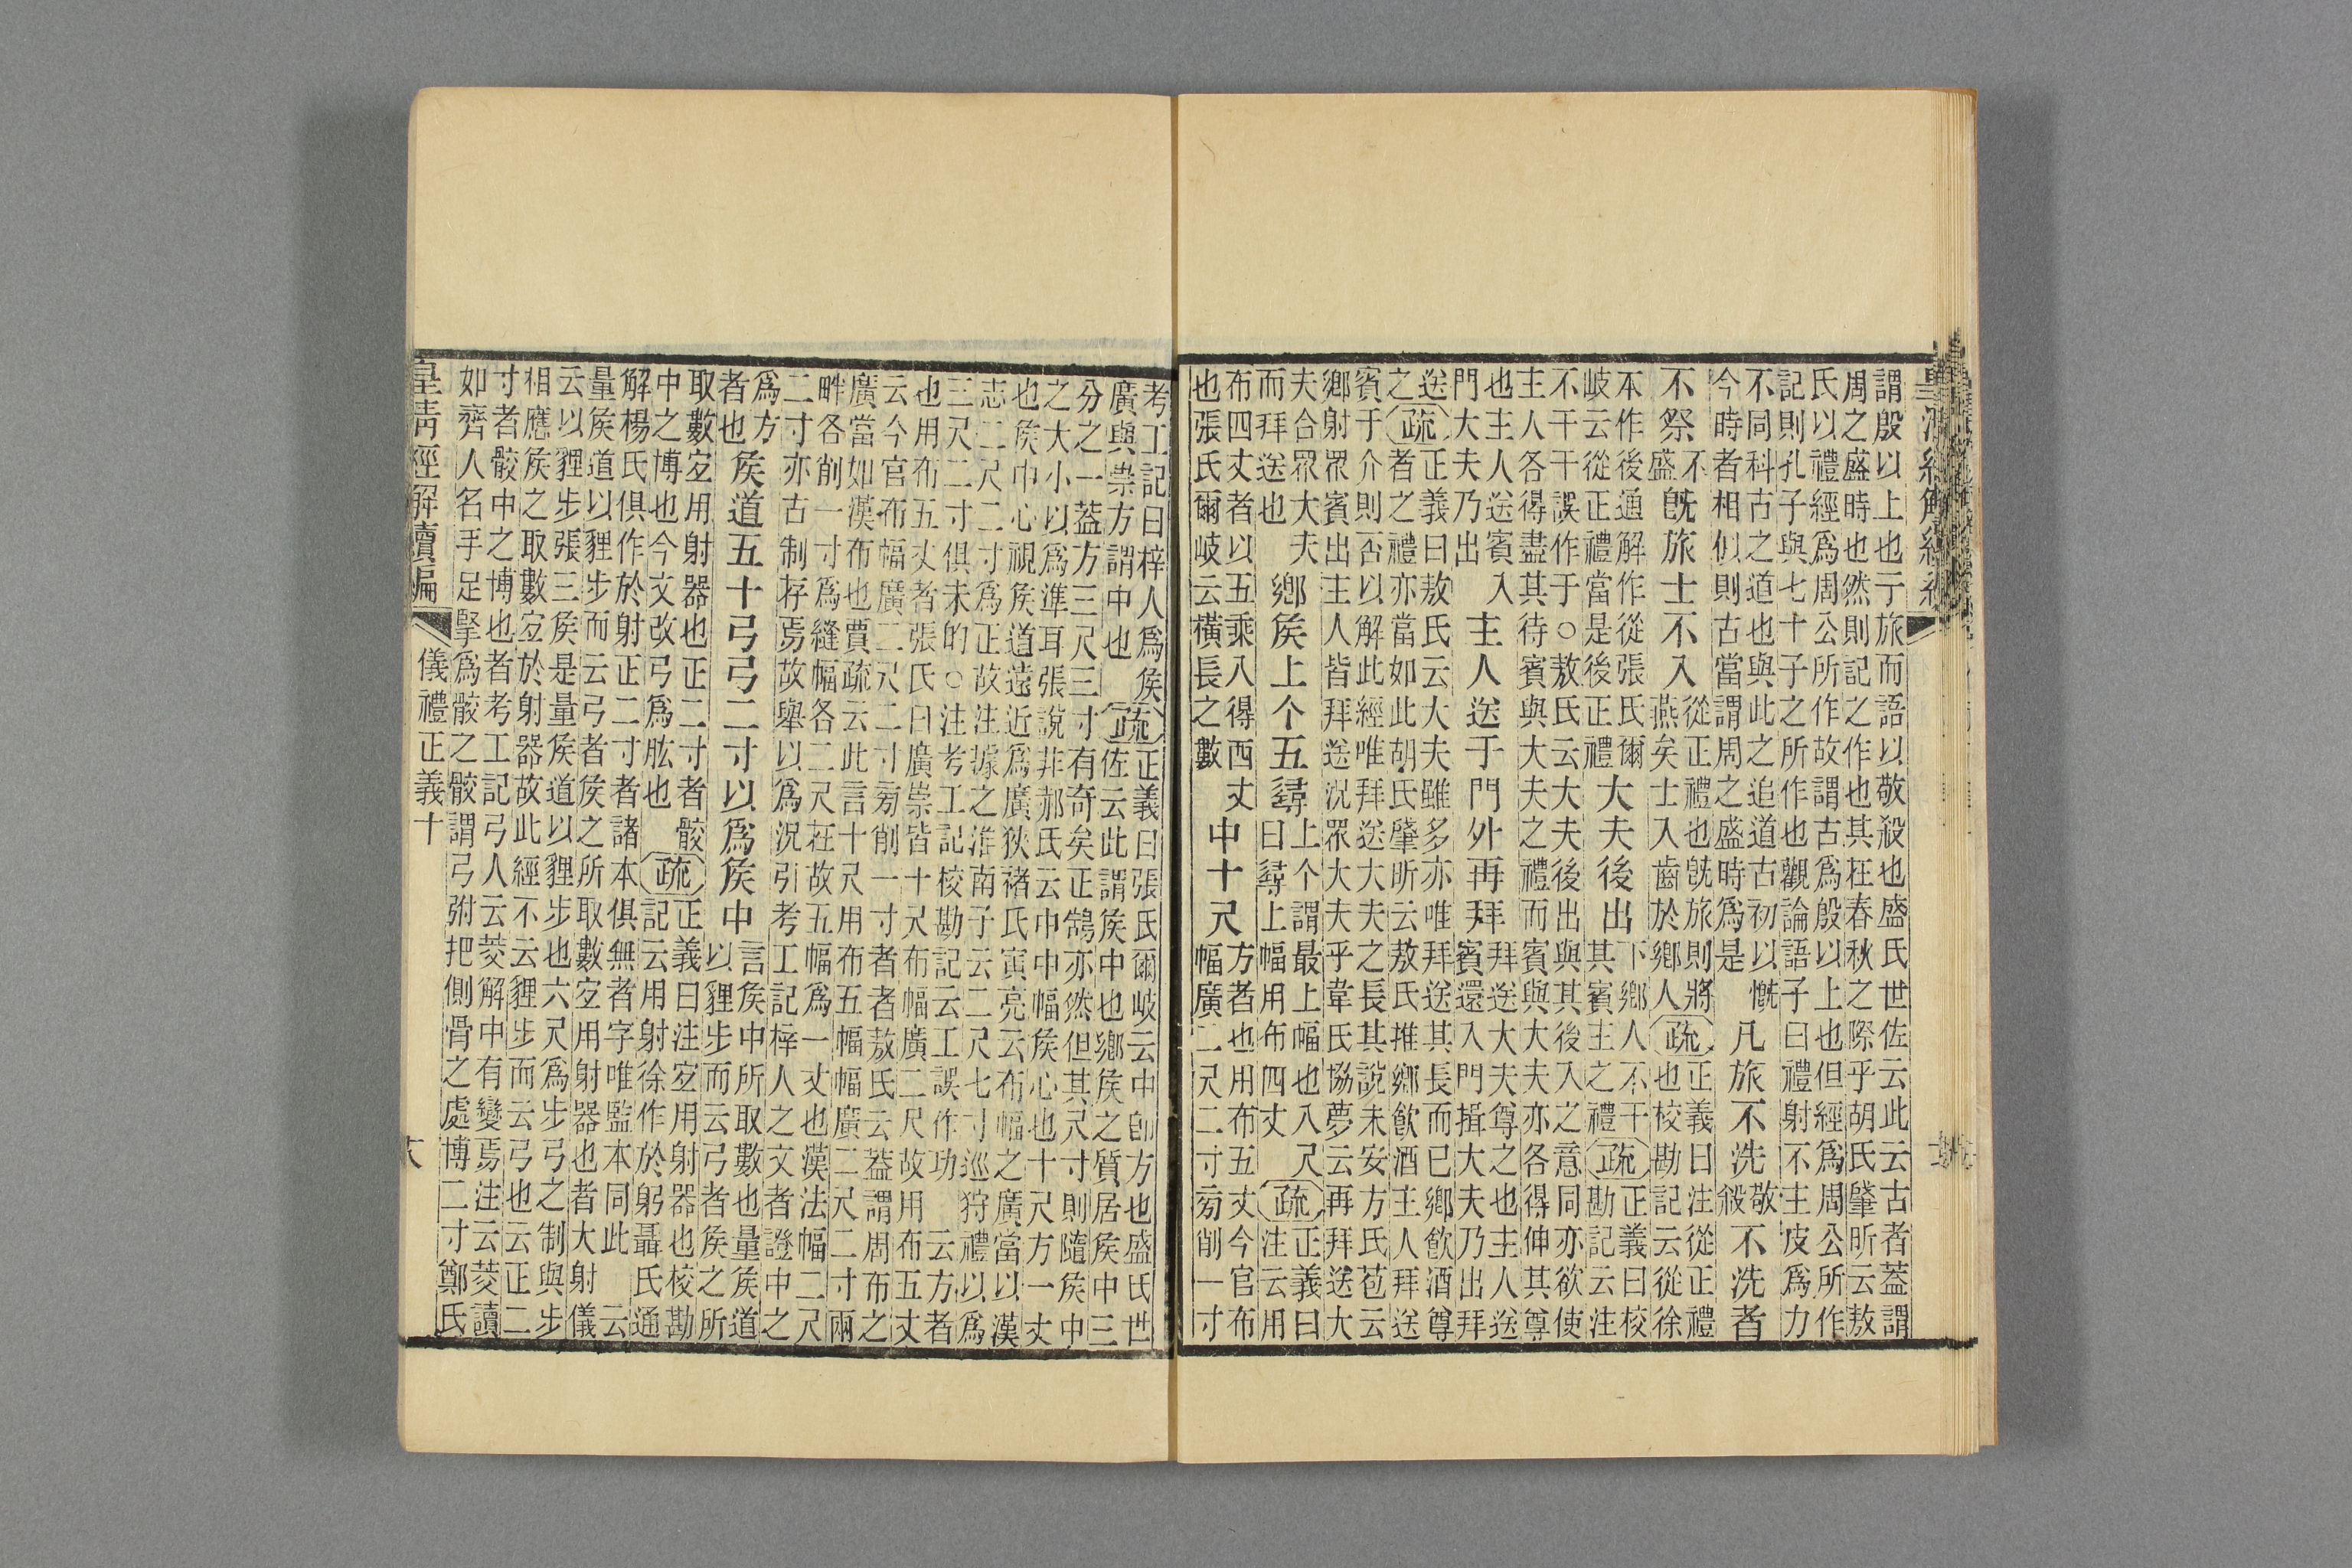 謂殷以上也于旅而語以敬殺也盛氏世佐云此云古者蓋謂
周之盛時也然則記之作也其在春秋之際乎胡氏肇昕云敖
氏以禮經爲周公所作故謂古爲殷以上也但經爲周公所作
記則孔子與七十子之所作也觀論語子曰禮射不主皮爲力
不同科古之道也與此之追道古初以慨
今時者相似則古當謂周之盛時爲是
凡旅不洗
敬
殺
不洗者
不祭
不
盛
旣旅士不入
從正禮也旣旅則將
燕矣士入齒於鄉人
疏
正義曰注從正禮
也校勘記云從徐
本作後通解作從張氏爾
岐云從正禮當是後正禮
大夫後出
下鄉人不干
其賓主之禮
疏
正義曰校
勘記云注
不干干誤作于○敖氏云大夫後出與其後入之意同亦欲使
主人各得盡其待賓與大夫之禮而賓與大夫亦各得伸其尊
也主人送賓入
門大夫乃出
主人送于門外再拜
拜送大夫尊之也主人送
賓還入門揖大夫乃出拜
送
之
疏
正義曰敖氏云大夫雖多亦唯拜送其長而已鄉飮酒尊
者之禮亦當如此胡氏肇昕云敖氏推鄉飮酒主人拜送
賓于介則否以解此經唯拜送大夫之長其說未安方氏苞云
鄉射眾賓出主人皆拜送況眾大夫乎韋氏協夢云再拜送大
夫合眾大夫
而拜送也
鄉侯上个五尋
上个謂最上幅也八尺
曰尋上幅用布四丈
疏
正義曰
注云用
布四丈者以五乘八得西丈
也張氏爾岐云橫長之數
中十尺
方者也用布五丈今官布
幅廣二尺二寸旁削一寸
考工記曰梓人爲侯
廣與崇方謂中也
疏
正義曰張氏爾岐云中卽方也盛氏世
佐云此謂侯中也鄉侯之質居侯中三
分之一蓋方三尺三寸有奇矣正鵠亦然但其尺寸則隨侯中
之大小以爲準耳張說非郝氏云中中幅侯心也十尺方一丈
也侯中心視侯道遠近爲廣狄褚氏寅亮云布幅之廣當以漢
志二尺二寸爲正故注據之淮南子云二尺七寸巡狩禮以爲
三尺二寸俱未的○注考工記校勘記云工誤作功 云方者
也用布五丈者張氏曰廣崇皆十尺布幅廣二尺故用布五丈
云今官布幅廣二尺二寸旁削一寸者者敖氏云蓋謂周布之
廣當如漢布也賈疏云此言十尺用布五幅幅廣二尺二寸兩
畔各削一寸爲縫幅各二尺在故五幅爲一丈也漢法幅二尺
二寸亦古制存焉故舉以爲況引考工記梓人之文者證中之
爲方
者也
侯道五十弓弓二寸以爲侯中
言侯中所取數也量侯道
以貍步而云弓者侯之所
取數宐用射器也正二寸者骹
中之博也今文改弓爲肱也
疏
正義曰注宐用射器也校勘
記云用射徐作於躬聶氏通
解楊氏俱作於射正二寸者諸本俱無者字唯監本同此 云
量侯道以貍步而云弓者侯之所取數宐用射器也者大射儀
云以貍步張三侯是量侯道以貍步也六尺爲步弓之制與步
相應侯之取數宐於射器故此經不云貍步而云弓也云正二
寸者骹中之博也者考工記弓人云菱解中有變焉注云菱讀
如齊人名手足掔爲骹之骹謂弓弣把側骨之處博二寸鄭氏
皇清經解續編 儀禮正義十